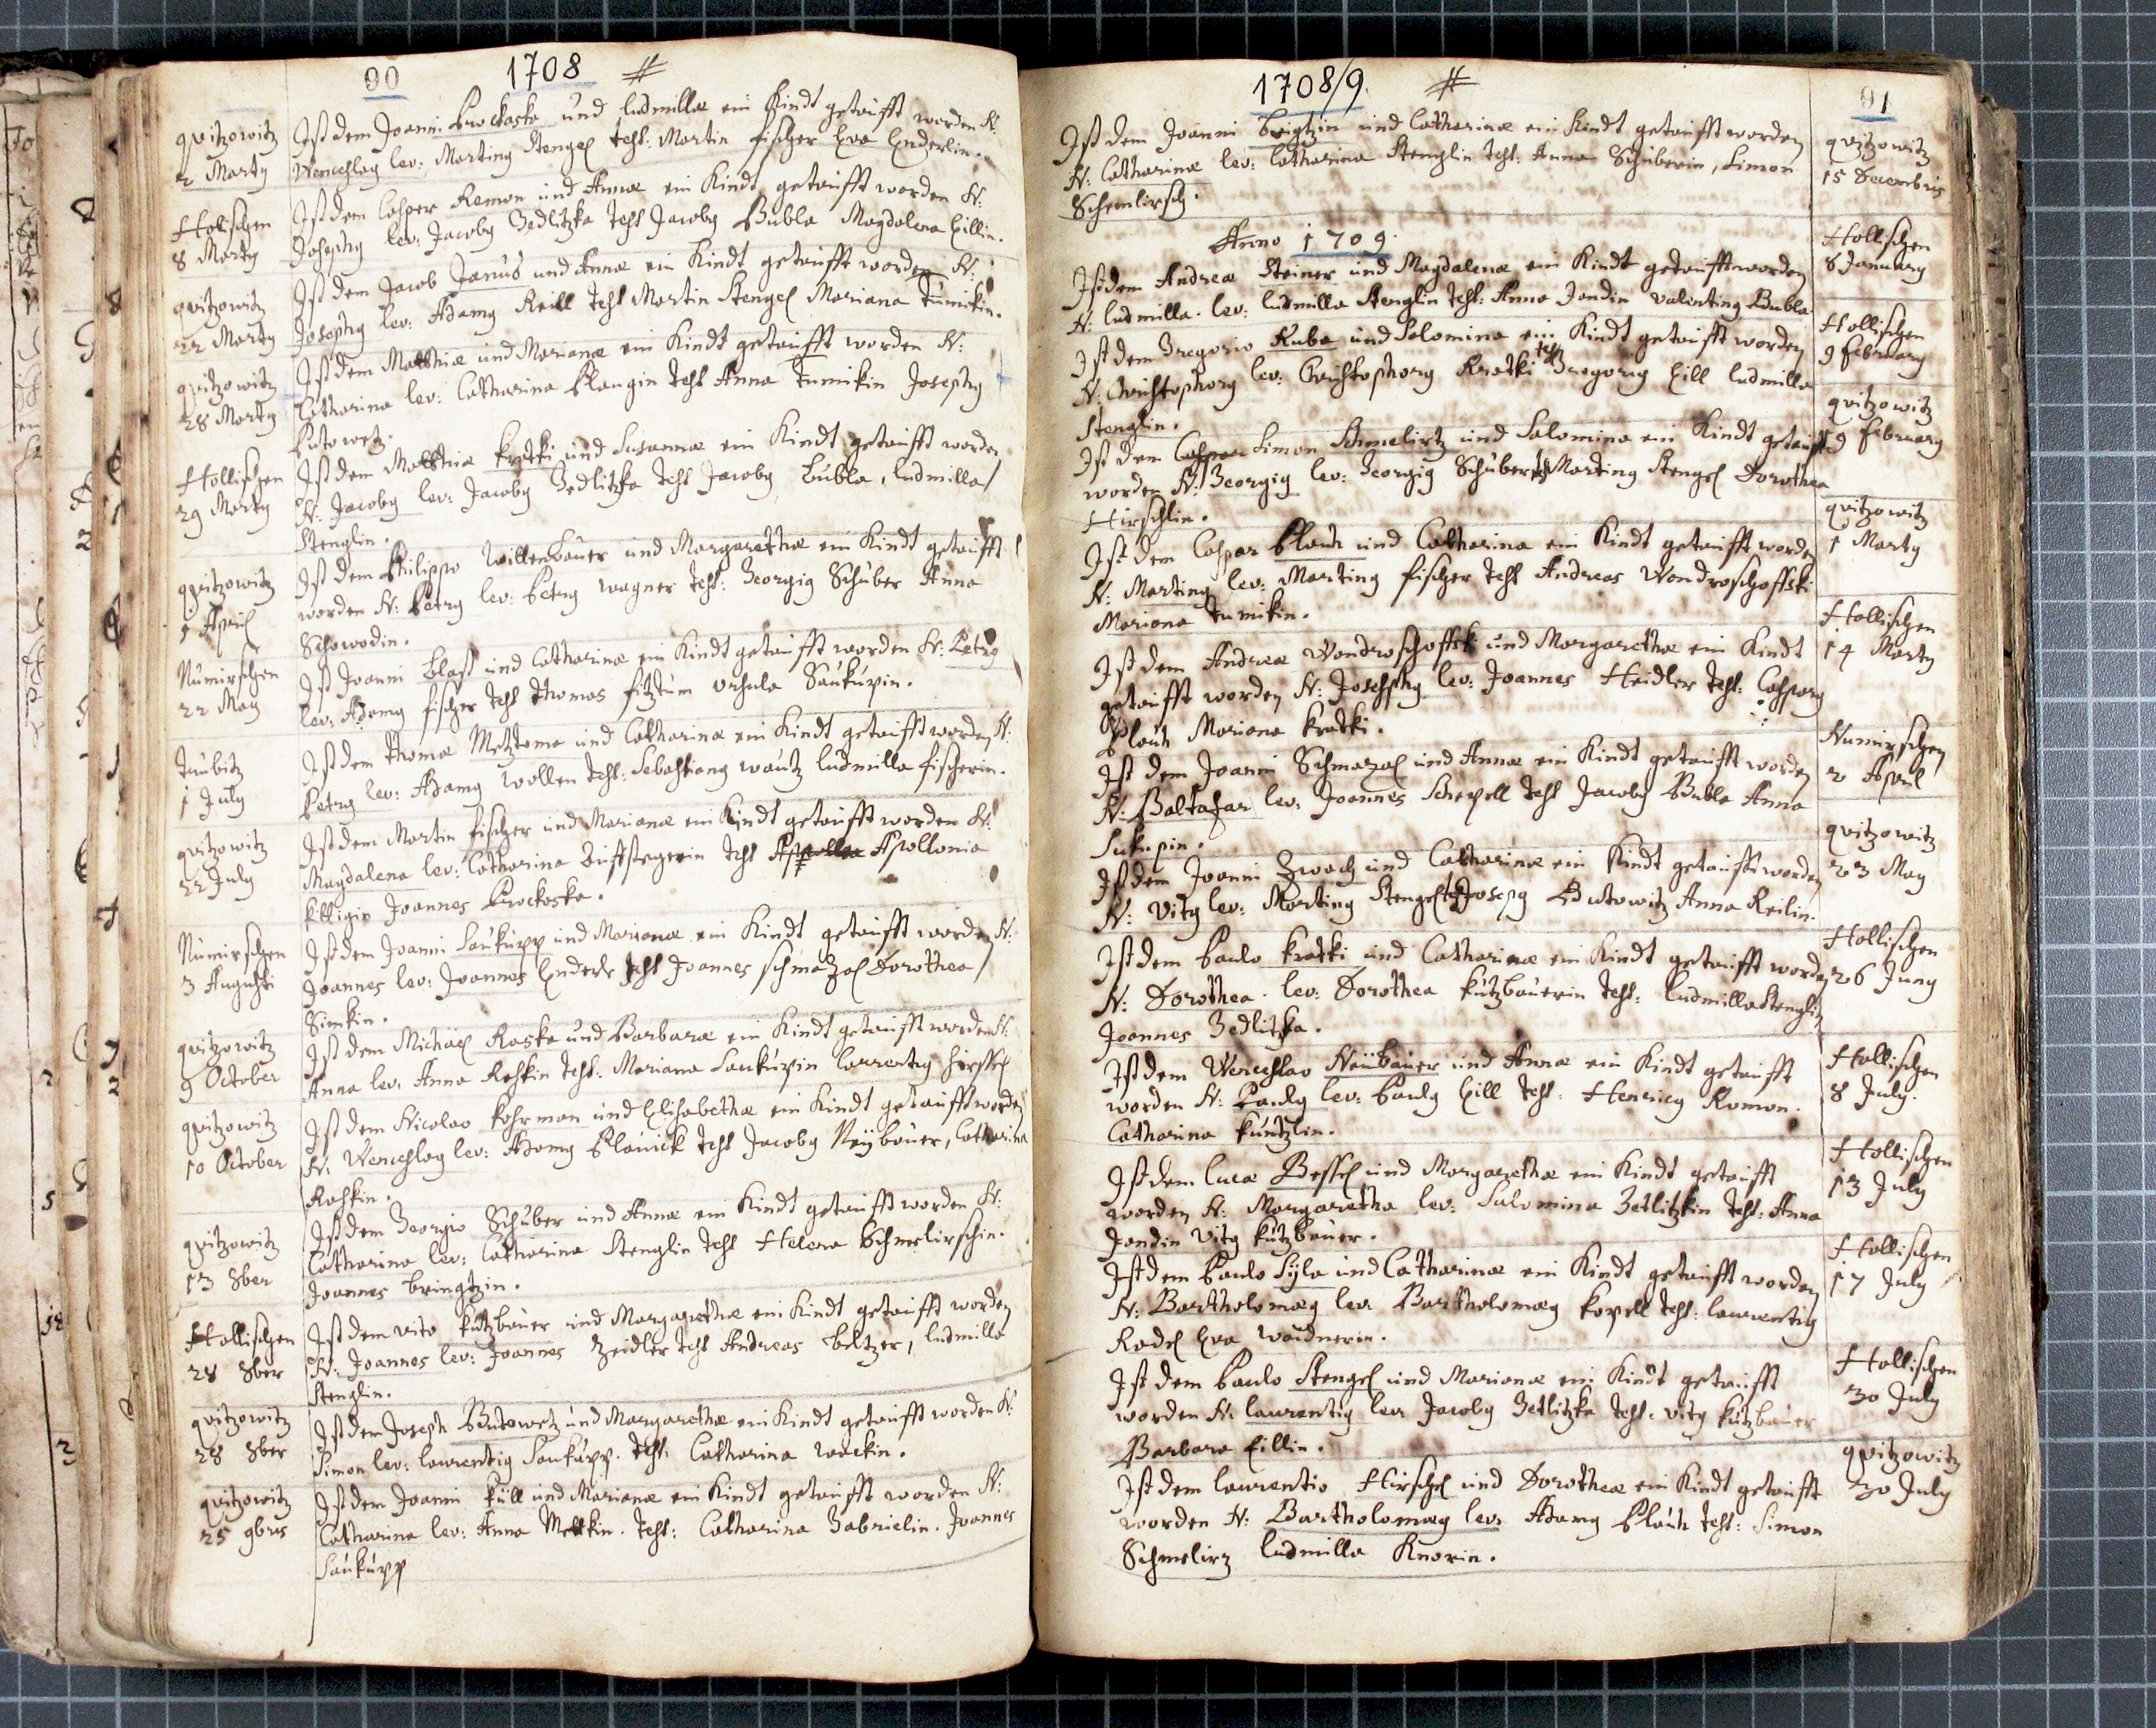 90 1708 #
qvitzowitz
2 Marty
Ist dem Joanni Prockoska und ludmillæ ein Kindt getaufft worden N:
Wenceslag lev: Marting Stengel test: Martin fischer Eva Enderlin.
Hollischen
8 Marty
Ist dem Casper Remon und Annæ ein Kindt getaufft worden N:
Josephg lev: Jacobg Zedlitzka test Jacobg Bubla Magdalena Eillin.
qvitzowitz
22 Marty
Ist dem Jacob Janus und Annæ ein Kindt getaufft worden N:
Josephg lev: Adamg Reill test Martin Stengel Mariana Tumikin.
qvitzowitz
28 Marty
Ist dem Matthiæ und Marianæ ein Kindt getaufft worden N:
Catharina lev: Catharina Plangin test Anna Tumikin Josephg
Putowetz.
Hollischen
29 Marty
Ist dem Matthiæ kratki und Susannæ ein Kindt getaufft worden
N: Jacobg lev: Jacobg Zedlitzka test Jacobg Bubla, ludmilla
Stenglin.
qvitzowitz
1 April
Ist dem Philippo Willenbauer und Margarethæ ein Kindt getaufft
worden N: Petrg lev: Petrg wagner test: Georgig Schuber Anna
Schowodin.
Numirschen
22 May
Ist Joanni Blass und Catharinæ ein Kindt getaufft worden N: Petrg
lev: Adamg fischer test Thomas fitztum Ursula Saukupin.
Taubitz
1 July
Ist dem Thomæ Metztoma und Catharinæ ein Kindt getaufft worden N:
Petrg lev: Adamg Wollen test: Sebastiang wautz ludmilla fischerin.
qvitzowitz
22 July
Ist dem Martin fischer und Marianæ ein Kindt getaufft worden N:
Magdalena lev: Catharina test Apollonia
killigin Joannes Prockoska.
Numirschen
3 Augusti
Ist dem Joanni Saukupp und Marianæ ein Kindt getaufft worden N:
Joannes lev: Joannes Enderle test Joannes schmazal Dorothea
Simkin.
qvitzowitz
9 October
Ist dem Michael Raska und Barbaræ ein Kindt getaufft worden N:
Anna lev: Anna Roskin test: Mariana Saukupin laurentig hirschl
qvitzowitz
10 October
Ist dem Nicolao kohrman und Elisabethæ ein Kindt getaufft worden
N: Wenceslag lev: Adamg Plauick test Jacobg Neybauer, Catharina
Roskin.
qvitzowitz
13 8ber
Ist dem Georgio Schuber und Annæ ein Kindt getaufft worden N:
Catharina lev: Catharina Stenglin test Helena Schmelirschin.
Joannes bringtzin.
Hollischen
28 8ber
Ist dem vito kutzbauer und Margarethæ ein Kindt getaufft worden
N: Joannes lev: Joannes Zeidler test Andreas beltzer, ludmilla
Stenglin.
qvitzowitz
28 8ber
Ist dem Joseph Butowetz und Margarethæ ein Kindt getaufft worden N:
Simon lev: laurentig Saukupp. test: Catharina wackin.
qvitzowitz
25 9bris
Ist dem Joanni küll und Marianæ ein Kindt getaufft worden N:
Catharina lev: Anna Mettkin. test: Catharina Gabrielin. Joannes
Saukupp
1708/9. # 91
Ist dem Joanni brigtzin und Catharinæ ein Kindt getaufft worden
N: Catharinæ lev: Catharina Stenglin test: Anna Schuberin, Simon
Schemlirsch.
qvitzowitz
15 Decembris
Anno 1709.
Ist dem Andreæ Steiner und Magdalenæ ein Kindt getaufft worden
N: ludmilla. lev: ludmilla Stenglin test: Anna Jandin valenting Bubla
Hollischen
8 January
Ist dem Gregorio Kuba und Salomina ein Kindt getaufft worden
N: Christophorg lev: Christophorg Kratki test Gregorig Eill ludmilla
Stenglin.
Hollischen
9 February
Ist dem Simon Schmelirtz und Salomina ein Kindt getaufft
worden N: Georgig lev: Georgig Schuber test Marting Stengel Dorothea
Hirschlin.
qvitzowitz
9 February
Ist dem Caspar Plauh und Catharina ein Kindt getaufft worden
N: Marting lev: Marting fischer test Andreas Wondroschoffski
Mariana Tumikin.
qvitzowitz
1 Marty
Ist dem Andreæ Wondroschoffsk und Margarethæ ein Kindt
getaufft worden N: Josephg lev: Joannes Heidler test: Casparg
Plauh Mariana kratki.
Hollischen
14 Marty
Ist dem Joanni Schmazal und Annæ ein Kindt getaufft worden
N: Baltasar lev: Joannes Schepell test Jacobg Bubla Anna
Sukupin.
Numirschen
2 April
Ist dem Joanni Zwach und Catharinæ ein Kindt getaufft worden
N: Vitg lev: Marting Stengel test Josepg Butowitz Anna Reilin.
qvitzowitz
23 May
Ist dem Paulo kratki und Catharinæ ein Kindt getaufft worden
N: Dorothea. lev: Dorothea kutzbauerin test: Ludmilla Stenglin
Joannes Zedlitzka.
Hollischen
26 Juny
Ist dem Wenceslao Neübauer und Annæ ein Kindt getaufft
worden N: Paulg lev: Paulg Eill test: Henricg Romon.
Catharina kuntzlin.
Hollischen
8 July.
Ist dem lucæ Bessel und Margarethæ ein Kindt getaufft
worden N: Margaretha lev: Salomina Zetlitzkin test: Anna
Jandin Vitg kutzbauer.
Hollischen
13 July
Ist dem Paulo Syla und Catharinæ ein Kindt getaufft worden
N: Bartholomæg lev: Bartholomæg kopell test: laurentig
Rodel Eva waidnerin.
Hollischen
17 July
Ist dem Paulo Stengel und Marianæ ein Kindt getaufft
worden N: laurentig lev: Jacobg Zetlitzka test: vitg kutzbauer
Barbara Eillin.
Hollischen
30 July
Ist dem laurentio Hirschel und Dorotheæ ein Kindt getaufft
worden N: Bartholomæg lev: Adamg Plauh test: Simon
Schmelirz ludmilla Knorin.
qvitzowitz
30 July